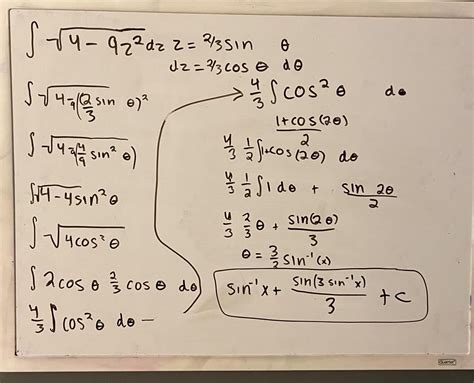 ∫ √4 - 9z² dz z = 2/3 sin θ
dz = 2/3 cos θ dθ
∫ √4 - 9(2/3 sin θ)²
∫ √4 9(4/9 sin² θ)
∫√4 - 4sin² θ
∫ √4cos² θ
∫ 2cos θ 2/3 cos θ dθ
4/3 ∫ cos² θ dθ —
→ 4/3 ∫ cos² θ dθ
1 + cos(2θ)/2
4/3 1/2 ∫1+cos(2θ) dθ
4/3 1/2 ∫ 1 dθ + sin 2θ/2
4/3 2/3 θ + sin(2θ)/3
θ = 3/2 sin⁻¹(x)
sin⁻¹x + sin(3 sin⁻¹x)/3 + c